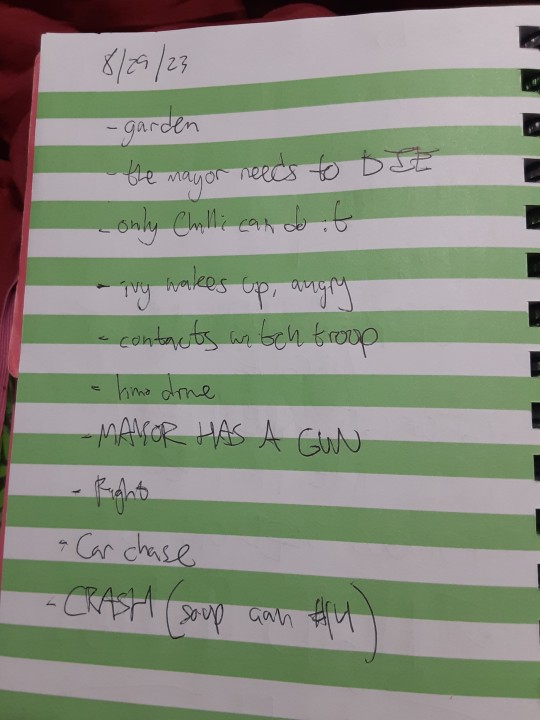 8/29/23
- garden
- the mayor needs to DIE
- only Chilli can do it
- ivy wakes up, angry
- contacts witch troop
- limo drive
- MAYOR HAS A GUN
- Fight
- Car chase
- CRASH (soup can #14)